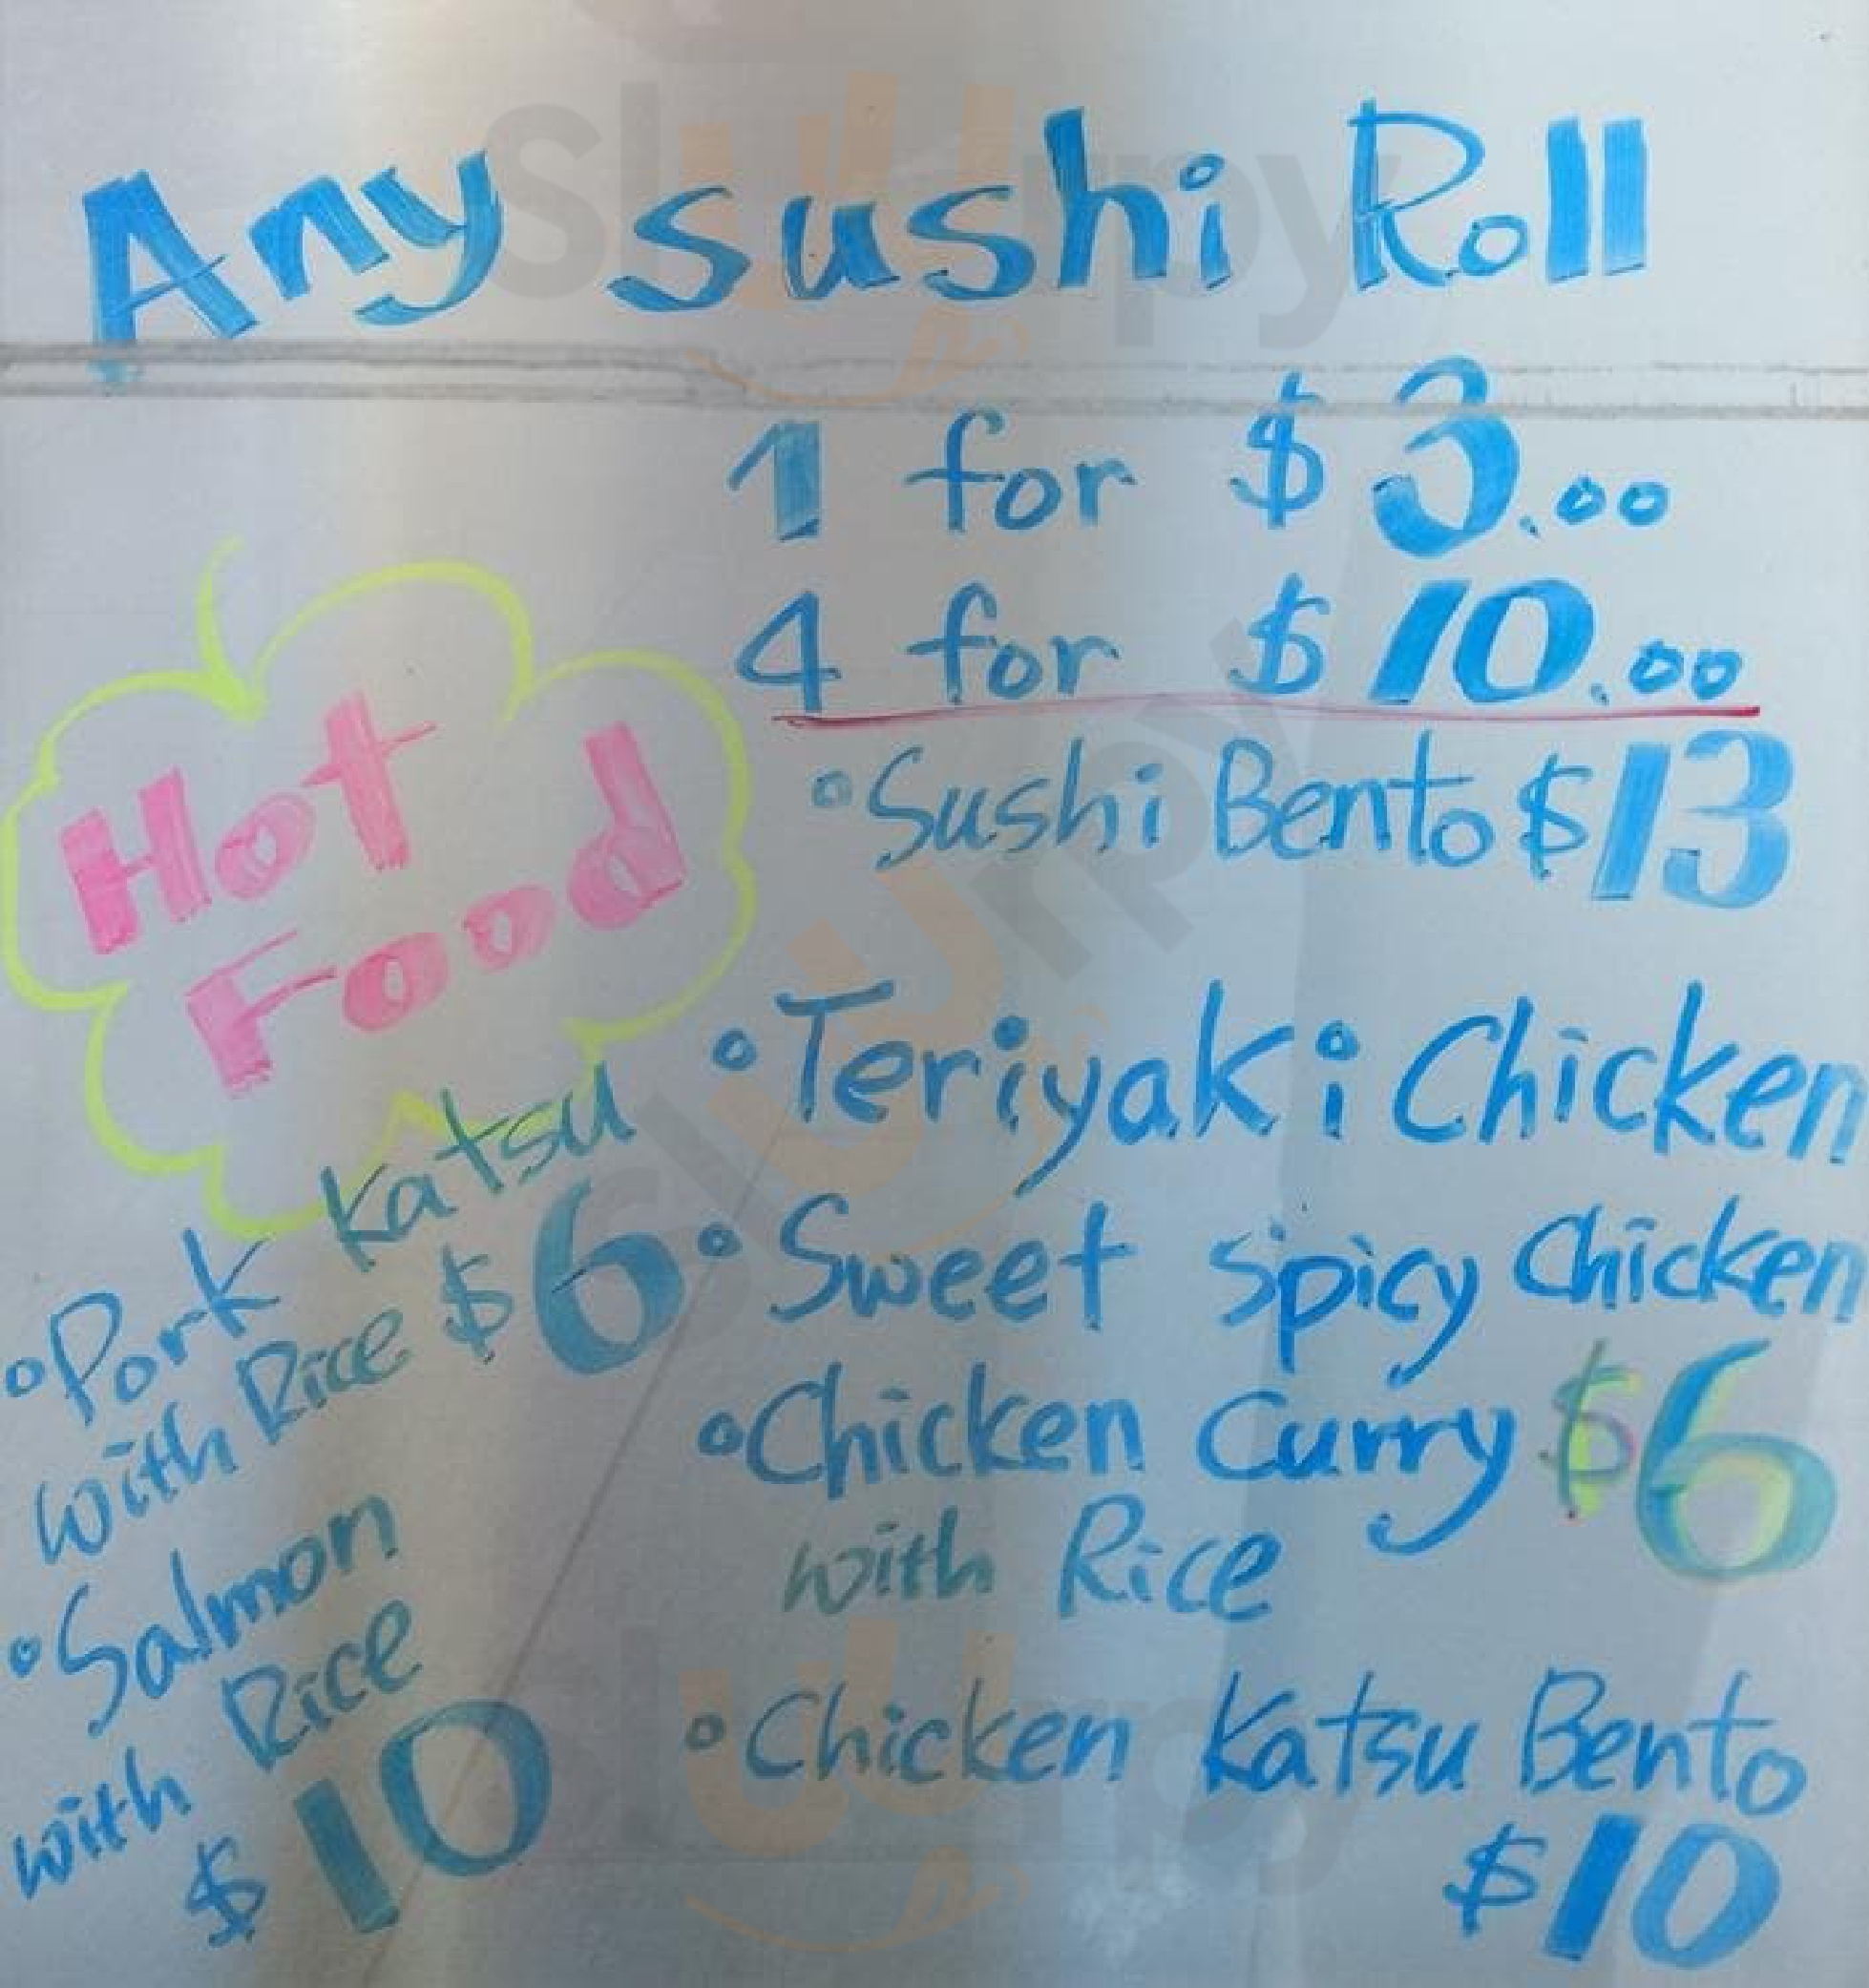 Any sushi Roll
1 for $3.00
4 for $10.00
Sushi Bento $13
Hot
Food
Teriyaki Chicken
Sweet spicy Chicken
Chicken Curry $6
with Rice
Chicken Katsu Bento
$10
Pork Katsu
with Rice $6
Salmon
with Rice
$10
Sluurpy
Sluurpy
Sluurpy